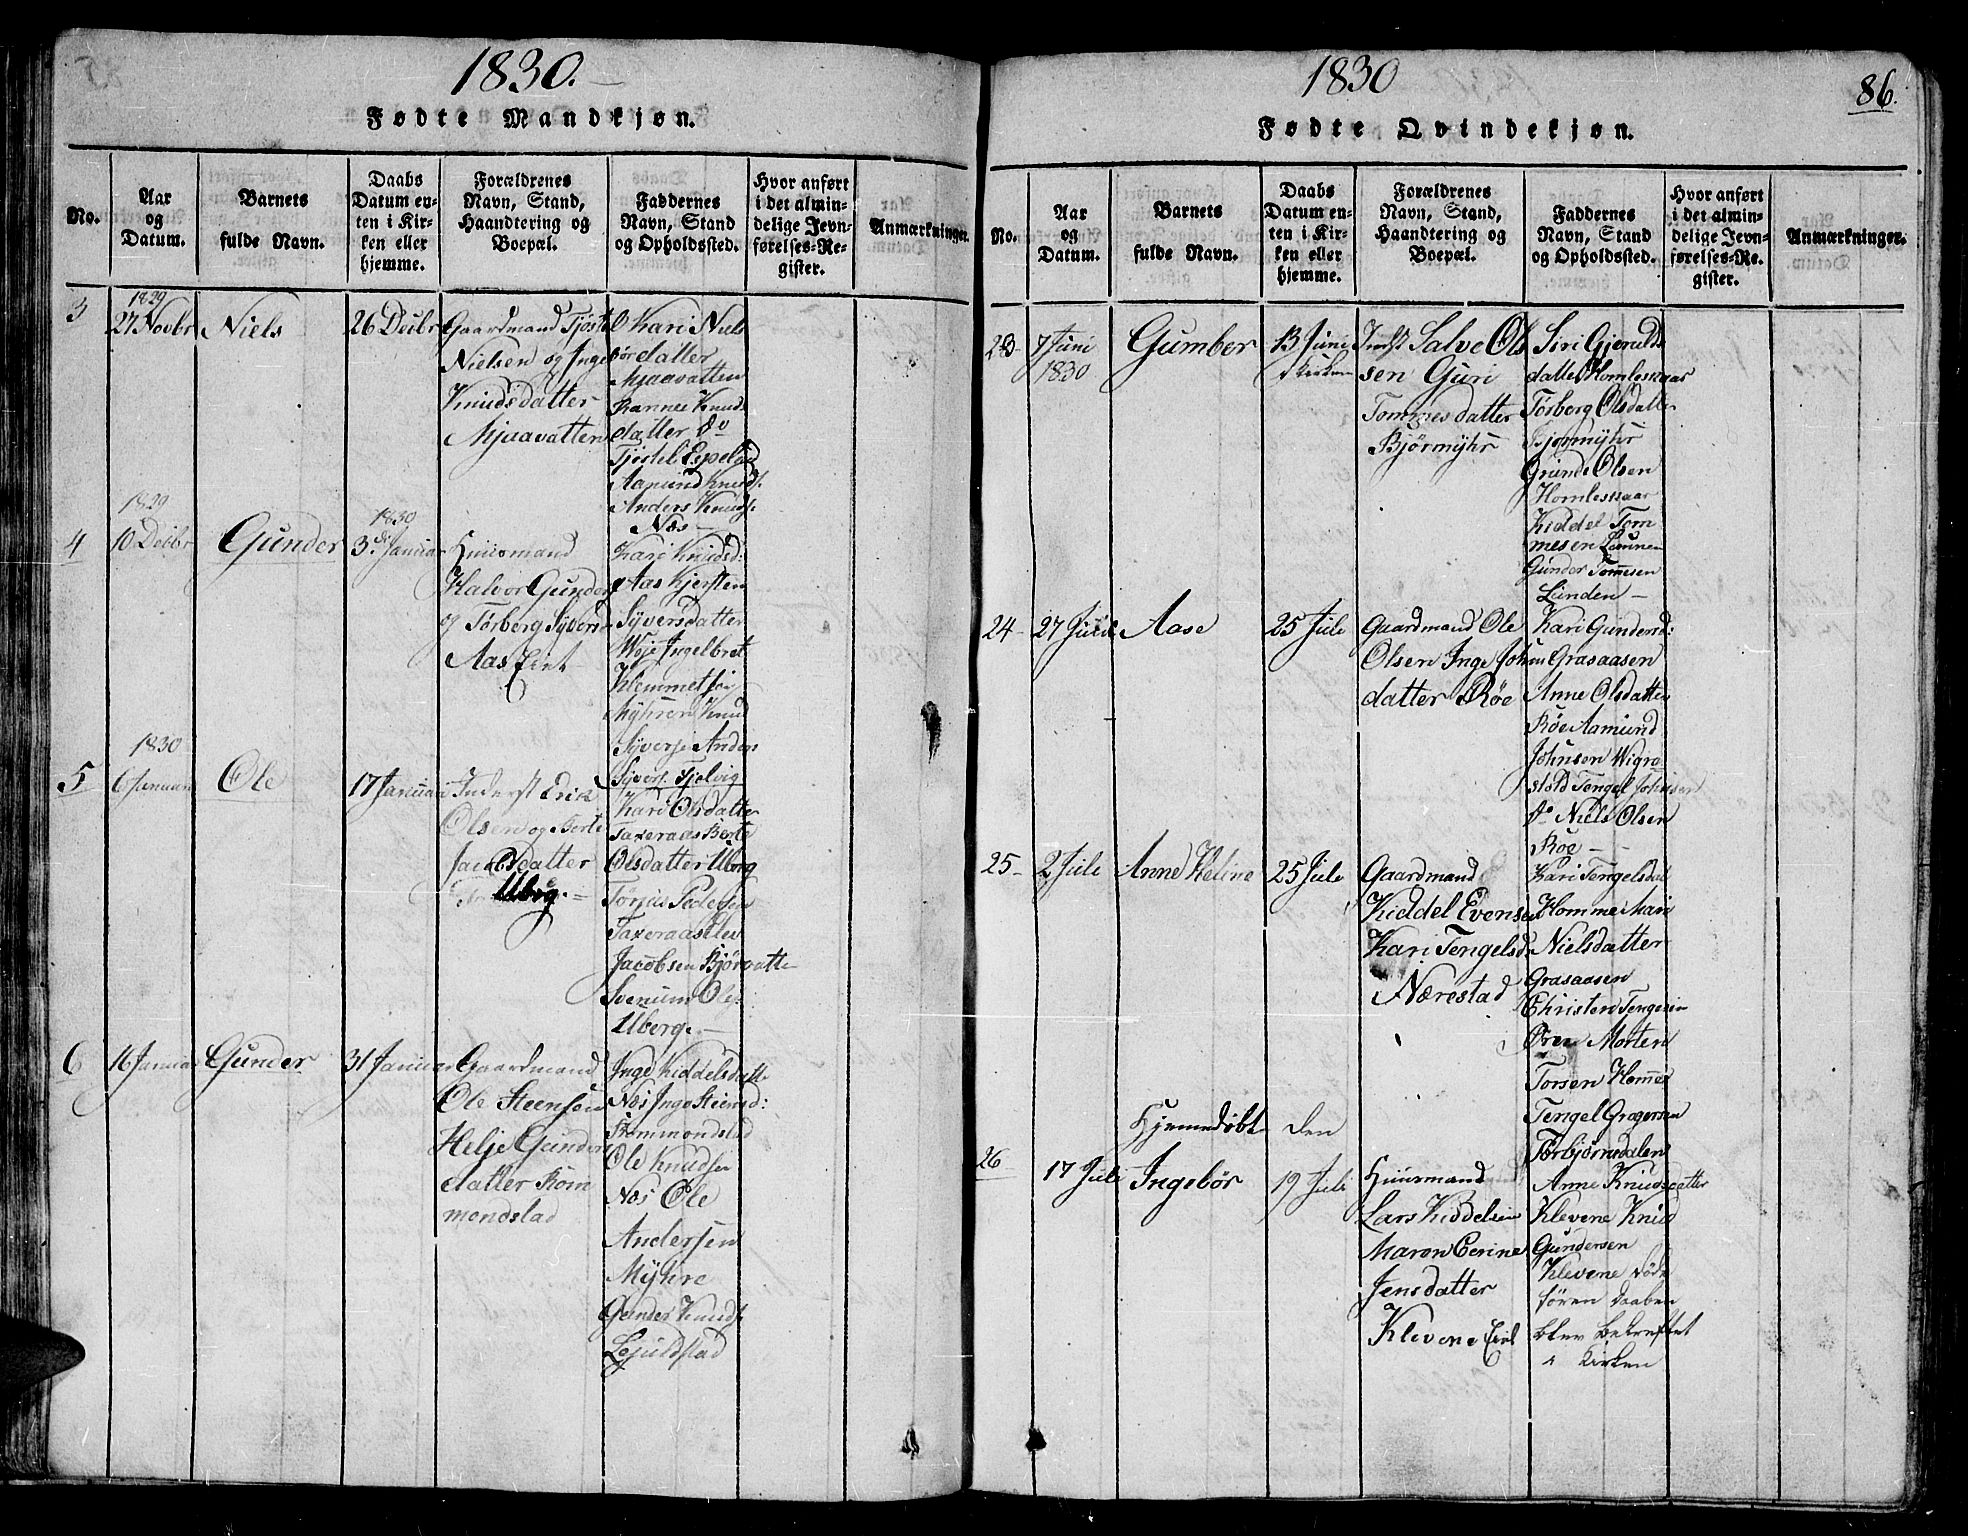 1830.
Fødte Mandkjøn.
No.
Aar
og
Datum.
Barnets
fulde Navn.
Daabs
Datum en-
ten i Kir-
ken eller
hjemme.
Forældrenes
Navn, Stand,
Haandtering og
Boepæl.
Faddernes
Navn, Stand
og Opholdssted.
Hvor anført
i det almin-
delige Jevn-
førelses-Re-
gister.
Anmærkninger.
3
1829
27 Novbr
Niels
26 Decbr
Gaardmand Tjøstel
Nielsen og Ingebør
Knudsdatter
Mjaavatten
Kari Niels
datter
Mjaavatten
Knuds
datter do
Tjøstel Espeland
Aamund Knuds.
Anders Knuds.
Næs
4
1829
10 Debbr
Gunder
1830
3de Januar
Huusmand
Halvor Gunders
og Torberg Syvers
Aas Eiet
Kari Knudsd:
Aas Kjersten
Syversdatter
Woje Ingelbret
Klemmetsen
Myhren Knud
Syvers. Anders
Syvers. Fjelvig
5
1830
6 Januar
Ole
17 Januar
Inderst Erik
Olsen og Berte
Jacobsdatter
Uberg.
Kari Olsdatter
Taxeraas Berte
Olsdatter Uberg
Torjus Pedersen
Taxeraas Elev
Jacobsen Bjørvatten
Svenum Ole
Uberg
6
16 Januar
Gunder
31 Januar
Gaardmand
Ole Steensen
Helje Gunders
datter Rom
mondstad
Inge Kiddelsdatter
Næs Inge Steensd:
Rommondstad
Ole Knudsen
Næs Ole
Andersen
Myhre
Gunder Knuds.
Lejulstad
1830
86.
Fødte Qvindekjøn.
No.
Aar
og
Datum.
Barnets
fulde Navn.
Daabs
Datum en-
ten i Kir-
ken eller
hjemme.
Forældrenes
Navn, Stand,
Haandtering og
Boepæl.
Faddernes
Navn, Stand
og Opholdssted.
Hvor anført
i det almin-
delige Jevn-
førelses-Re-
gister.
Anmærkninger.
23
7 Juni
1830
Gumber
13 Juni
i Kirken
Indst Salve Ols
sen Guri
Tommesdatter
Bjørmyhr
Siri Gjerulds
datter Homleskaar
Torberg Olsdatter
Bjormyhr
Grunde Olsen
Homleskaar
Kiddel Tom
mesen Lunnen
Gunder Tommesen
Lunden
24
27 Juni
Aase
25 Jule
Gaardmand Ole
Olsen Inge Johns
datter Røe
Kari Gundersd:
Grasaasen
Anne Olsdatter
Røe Aamund
Johnsen Wigre
stold Tengel Johnsen
do Niels Olsen
Røe
25
2 Jule
Anne Keline
25 Jule
Gaardmand
Kiddel Evensen
Kari Tengelsd
Nærestad
Kari Tengelsdat
Homme Mari
Nielsdatter
Grasaasen
Christen Tengesen
Øren Morten
Torsen Homme
Tengel Gregersen
Torbjørnsdalen
26
17 Jule
Hjemmedøbt
Ingebør
den
19 Jule
Huusmand
Lars Kiddelsen
Maren Cerine
Jensdatter
Klevene Eiet
Anne Knudsdatter
Klevene Knud
Gundersen
Klevene
daaben
blev bekreftet
i Kirken